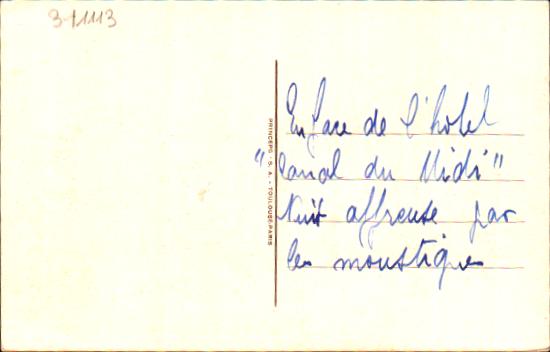 3-1113
PRINCEPS - S. A. - TOULOUSE-PARIS
En face de l'hotel
"Canal du Midi"
Nuit affreuse par
les moustiques